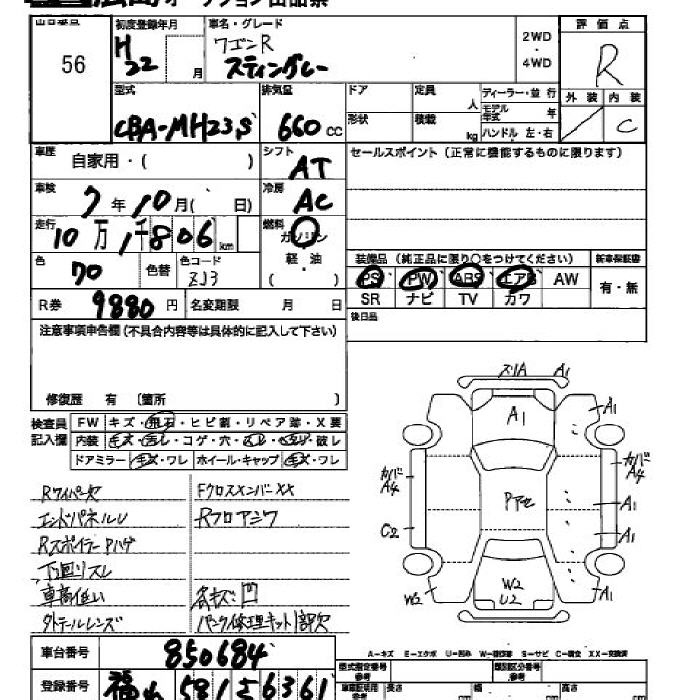 オークション出品票
出品番号
56
初度登録年月
H22
月
車名・グレード
ワゴンR
スティングレー
2WD
・
4WD
評価点
R
外装
内装
C
型式
CBA-MH23S
排気量
660 cc
ドア
形状
定員
人
積載
kg
ディーラー・並行
モデル年式
年
ハンドル 左・右
車歴
自家用・( )
シフト
AT
セールスポイント(正常に機能するものに限ります)
車検
7年10月( 日)
冷房
AC
走行
10万1千806km
燃料
ガソリン
軽・油
( )
色
70
色替
色コード
ZJ3
装備品(純正品に限り○をつけてください)
新車保証書
PS PW ABS エアB AW
SR ナビ TV カワ
有・無
R券 9880円
名変期限 月 日
後日品
注意事項申告欄(不具合内容等は具体的に記入して下さい)
修復歴 有 〔箇所 〕
検査員記入欄
FW キズ・飛石・ヒビ割・リペア跡・X要
内装 キズ・汚レ・コゲ・穴・
破レ
ドアミラー キズ・ワレ ホイール・キャップ キズ・ワレ
Rワイパー欠
エンドパネルU
Rスポイラー Pハゲ
下回リスレ
車高低い
外テールレンズ
FクロスメンバーXX
Rフロアシワ
各キズ凹
パンク修理キット1部欠
スリA A1
A1
A1
カバーA4
カバーA4
Pアセ
A1
C2
A1
W2
W2
U2
A1
A-キズ E-エクボ U-凹み W-補修跡 S-サビ C-腐食 XX-交換済
車台番号
850684
型式指定番号
参考
類別区分番号
参考
登録番号
福山 581 え 6361
車庫証明用
参考
長さ
cm
幅
cm
高さ
cm